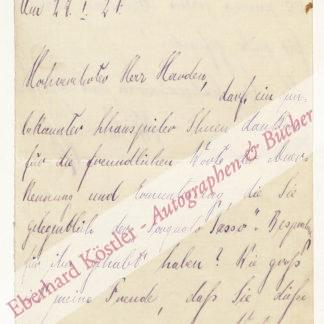 Hochverehrter Herr Harden,
darf ein un-
bekannter Schauspieler Ihnen danken
für die freundlichen Worte der Aner-
kennung und
die Sie
gelegentlich der „Torquato Tasso“-
für ihn gehabt haben? Wie groß
meine Freude, daß Sie diese
Eberhard Köstler - Autographen & Bücher